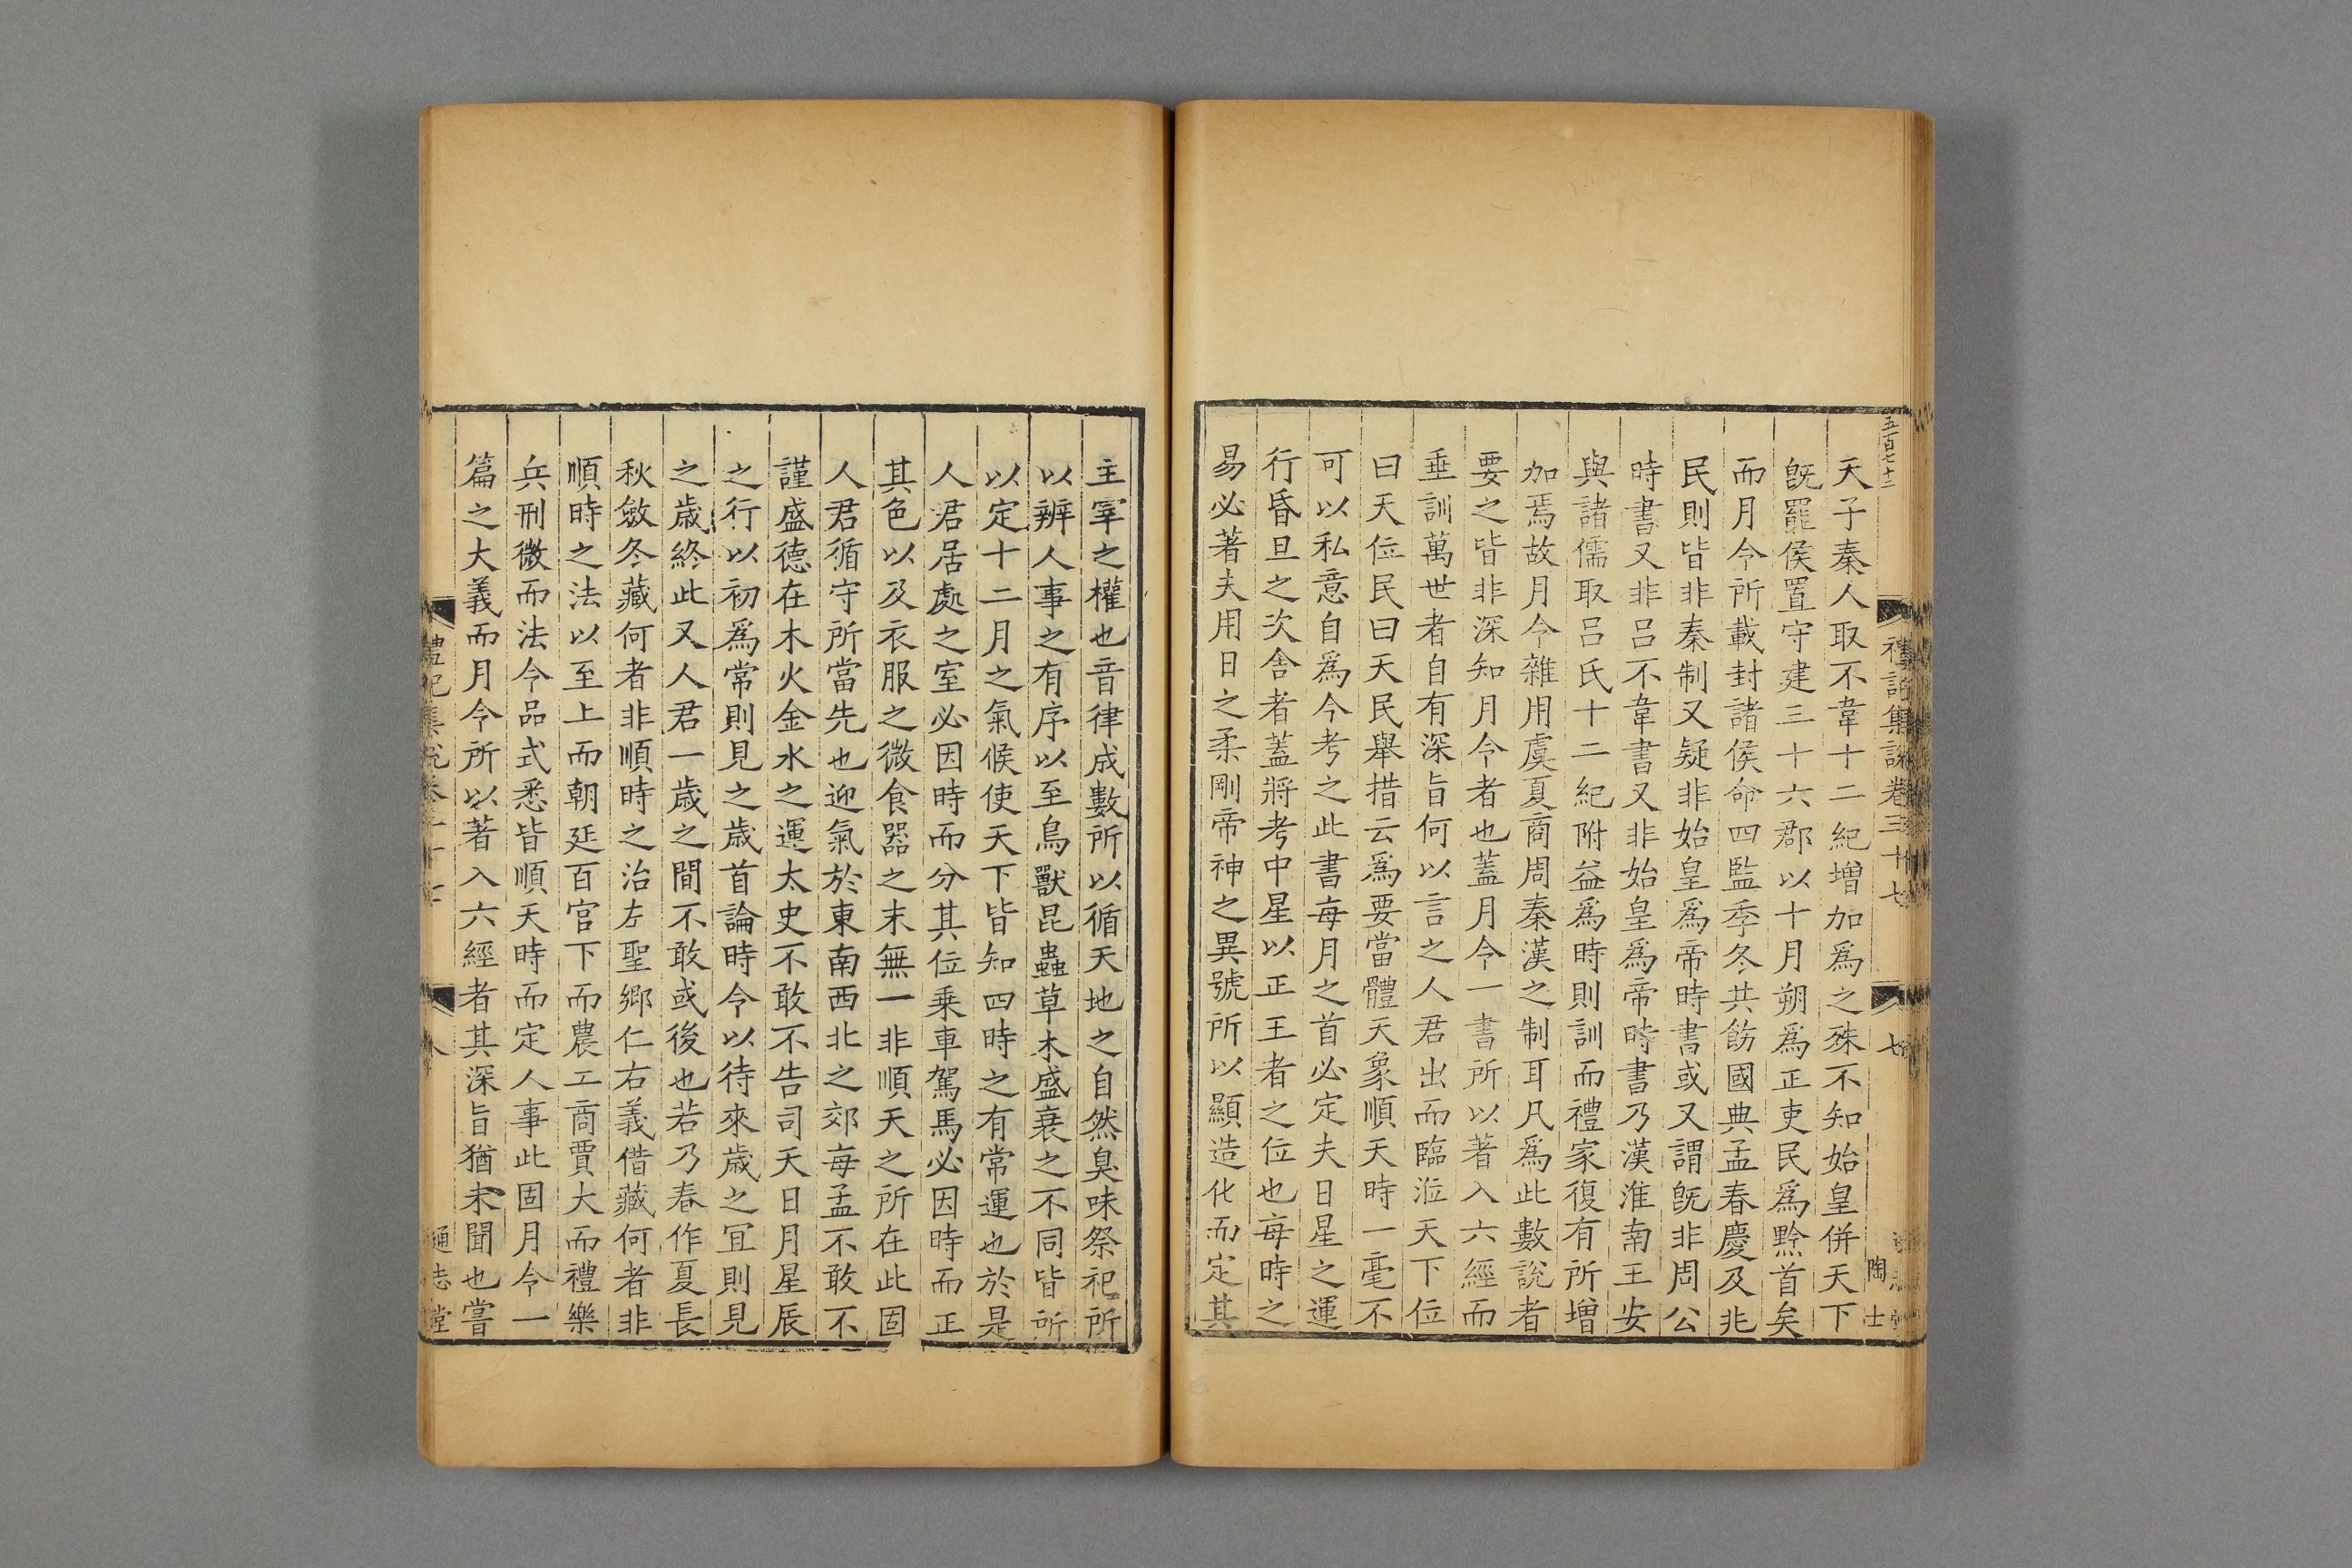 五百七十二
禮記集説卷三十七
七
陶士
天子秦人取不韋十二紀增加爲之殊不知始皇併天下
旣罷侯置守建三十六郡以十月朔爲正吏民爲黔首矣
而月令所載封諸侯命四監季冬共飭國典孟春慶及兆
民則皆非秦制又疑非始皇爲帝時書或又謂旣非周公
時書又非呂不韋書又非始皇爲帝時書乃漢淮南王安
與諸儒取呂氏十二紀附益爲時則訓而禮家復有所增
加焉故月令雜用虞夏商周秦漢之制耳凡爲此數說者
要之皆非深知月令者也蓋月令一書所以著入六經而
垂訓萬世者自有深旨何以言之人君出而臨涖天下位
曰天位民曰天民舉措云爲要當體天象順天時一毫不
可以私意自爲今考之此書每月之首必定夫日星之運
行昏旦之次舍者蓋將考中星以正王者之位也每時之
易必著夫用日之柔剛帝神之異號所以顯造化而定其
主宰之權也音律成數所以循天地之自然臭味祭祀所
以辨人事之有序以至鳥獸昆蟲草木盛衰之不同皆所
以定十二月之氣候使天下皆知四時之有常運也於是
人君居處之室必因時而分其位乘車駕馬必因時而正
其色以及衣服之微食器之末無一非順天之所在此固
人君循守所當先也迎氣於東南西北之郊每孟不敢不
謹盛德在木火金水之運太史不敢不告司天日月星辰
之行以初爲常則見之歲首論時令以待來歲之宜則見
之歲終此又人君一歲之間不敢或後也若乃春作夏長
秋斂冬藏何者非順時之治左聖鄉仁右義偝藏何者非
順時之法以至上而朝廷百官下而農工商賈大而禮樂
兵刑微而法令品式悉皆順天時而定人事此固月令一
篇之大義而月令所以著入六經者其深旨猶未聞也嘗
禮記集説卷三十七
八
通志堂